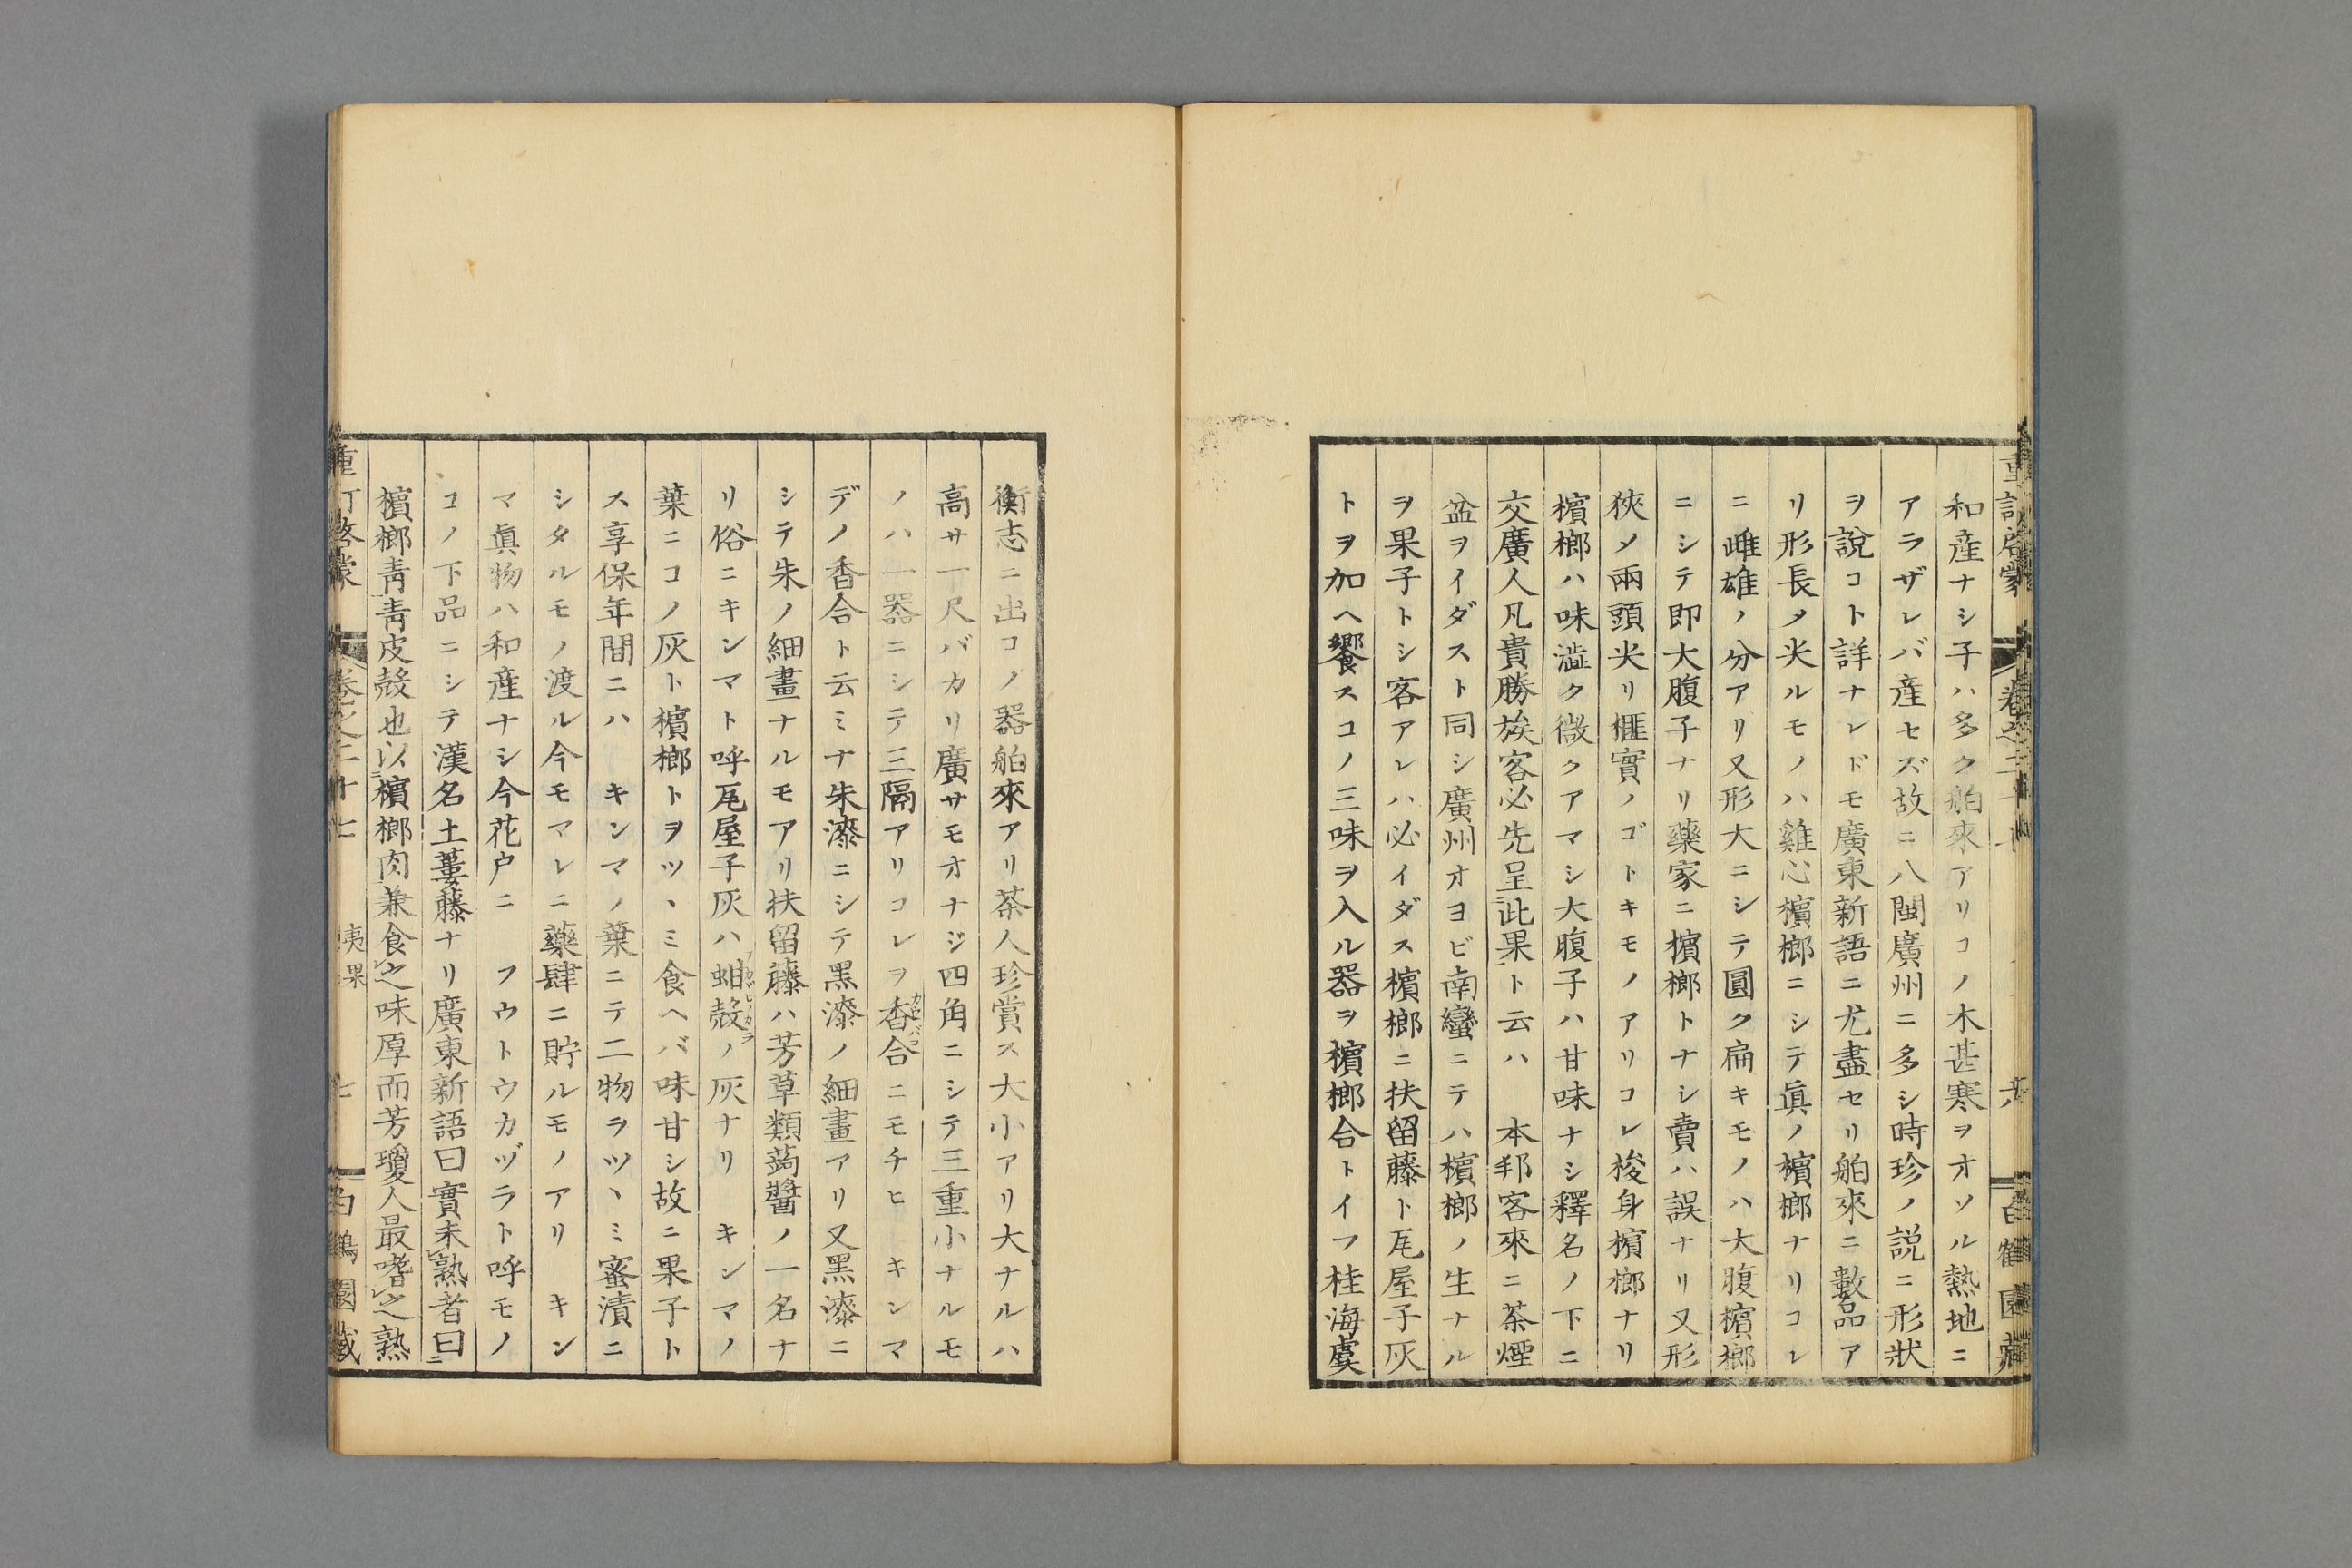 和産ナシ子ハ多ク舶來アリコノ木甚寒ヲオソル熱地ニ
アラザレバ産セズ故ニ八閩廣州ニ多シ時珍ノ説ニ形狀
ヲ說コト詳ナレドモ廣東新語ニ尤盡セリ舶來ニ數品ア
リ形長メ尖ルモノハ雞心檳榔ニシテ眞ノ檳榔ナリコレ
ニ雌雄ノ分アリ又形大ニシテ圓ク扁キモノハ大腹檳榔
ニシテ即大腹子ナリ藥家ニ檳榔トナシ賣ハ誤ナリ又形
狹メ兩頭尖リ榧實ノゴトキモノアリコレ梭身檳榔ナリ
檳榔ハ味澁ク微クアマシ大腹子ハ甘味ナシ釋名ノ下ニ
交廣人凡貴勝族客必先呈此果ト云ハ　本邦客來ニ茶煙
盆ヲイダスト同シ廣州オヨビ南蠻ニテハ檳榔ノ生ナル
ヲ果子トシ客アレハ必イダス檳榔ニ扶留藤ト瓦屋子灰
トヲ加ヘ饗スコノ三味ヲ入ル器ヲ檳榔合トイフ桂海虞
衡志ニ出コノ器舶來アリ茶人珍賞ス大小アリ大ナルハ
高サ一尺バカリ廣サモオナジ四角ニシテ三重小ナルモ
ノハ一器ニシテ三隔アリコレヲ香合ニモチヒ　キンマ
デノ香合ト云ミナ朱漆ニシテ黑漆ノ細畫アリ又黑漆ニ
シテ朱ノ細畫ナルモアリ扶留藤ハ芳草類蒟醬ノ一名ナ
リ俗ニキンマト呼瓦屋子灰ハ蚶殼ノ灰ナリ　キンマノ
葉ニコノ灰ト檳榔トヲツヽミ食ヘバ味甘シ故ニ果子ト
ス享保年間ニハ　キンマノ葉ニテ二物ヲツヽミ蜜漬ニ
シタルモノ渡ル今モマレニ藥肆ニ貯ルモノアリ　キン
マ眞物ハ和産ナシ今花戸ニ　フウトウカヅラト呼モノ
コノ下品ニシテ漢名土蔞藤ナリ廣東新語曰實未熟者曰
檳榔青青皮殼也以檳榔肉兼食之味厚而芳瓊人最嗜之熟
卷之二十七
夷果
七
白鶴園藏